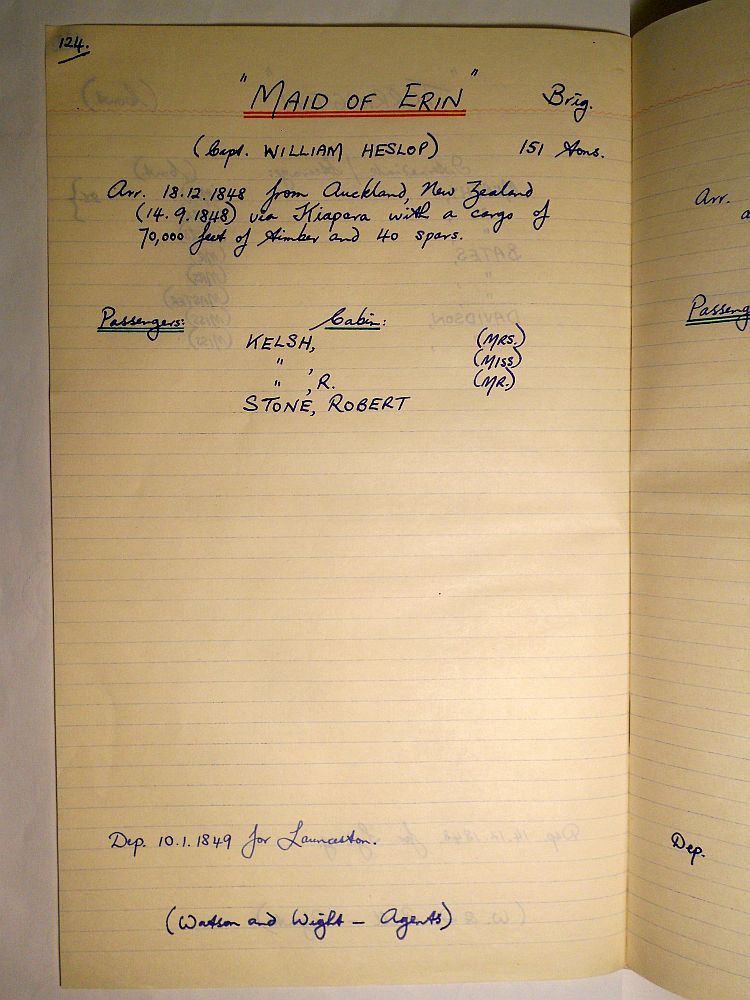 124.
"MAID OF ERIN" Brig.
(Capt. WILLIAM HESLOP) 151 tons.
Arr. 18.12.1848 from Auckland, New Zealand
(14.9.1848) via Kiapara with a cargo of
70,000 feet of timber and 40 spars.
Passengers: Cabin:
KELSH, (MRS.)
" , (MISS)
" , R. (MR.)
STONE, ROBERT
Dep. 10.1.1849 for Launceston.
(Watson and Wight - Agents)
Arr.
Passeng
Dep.